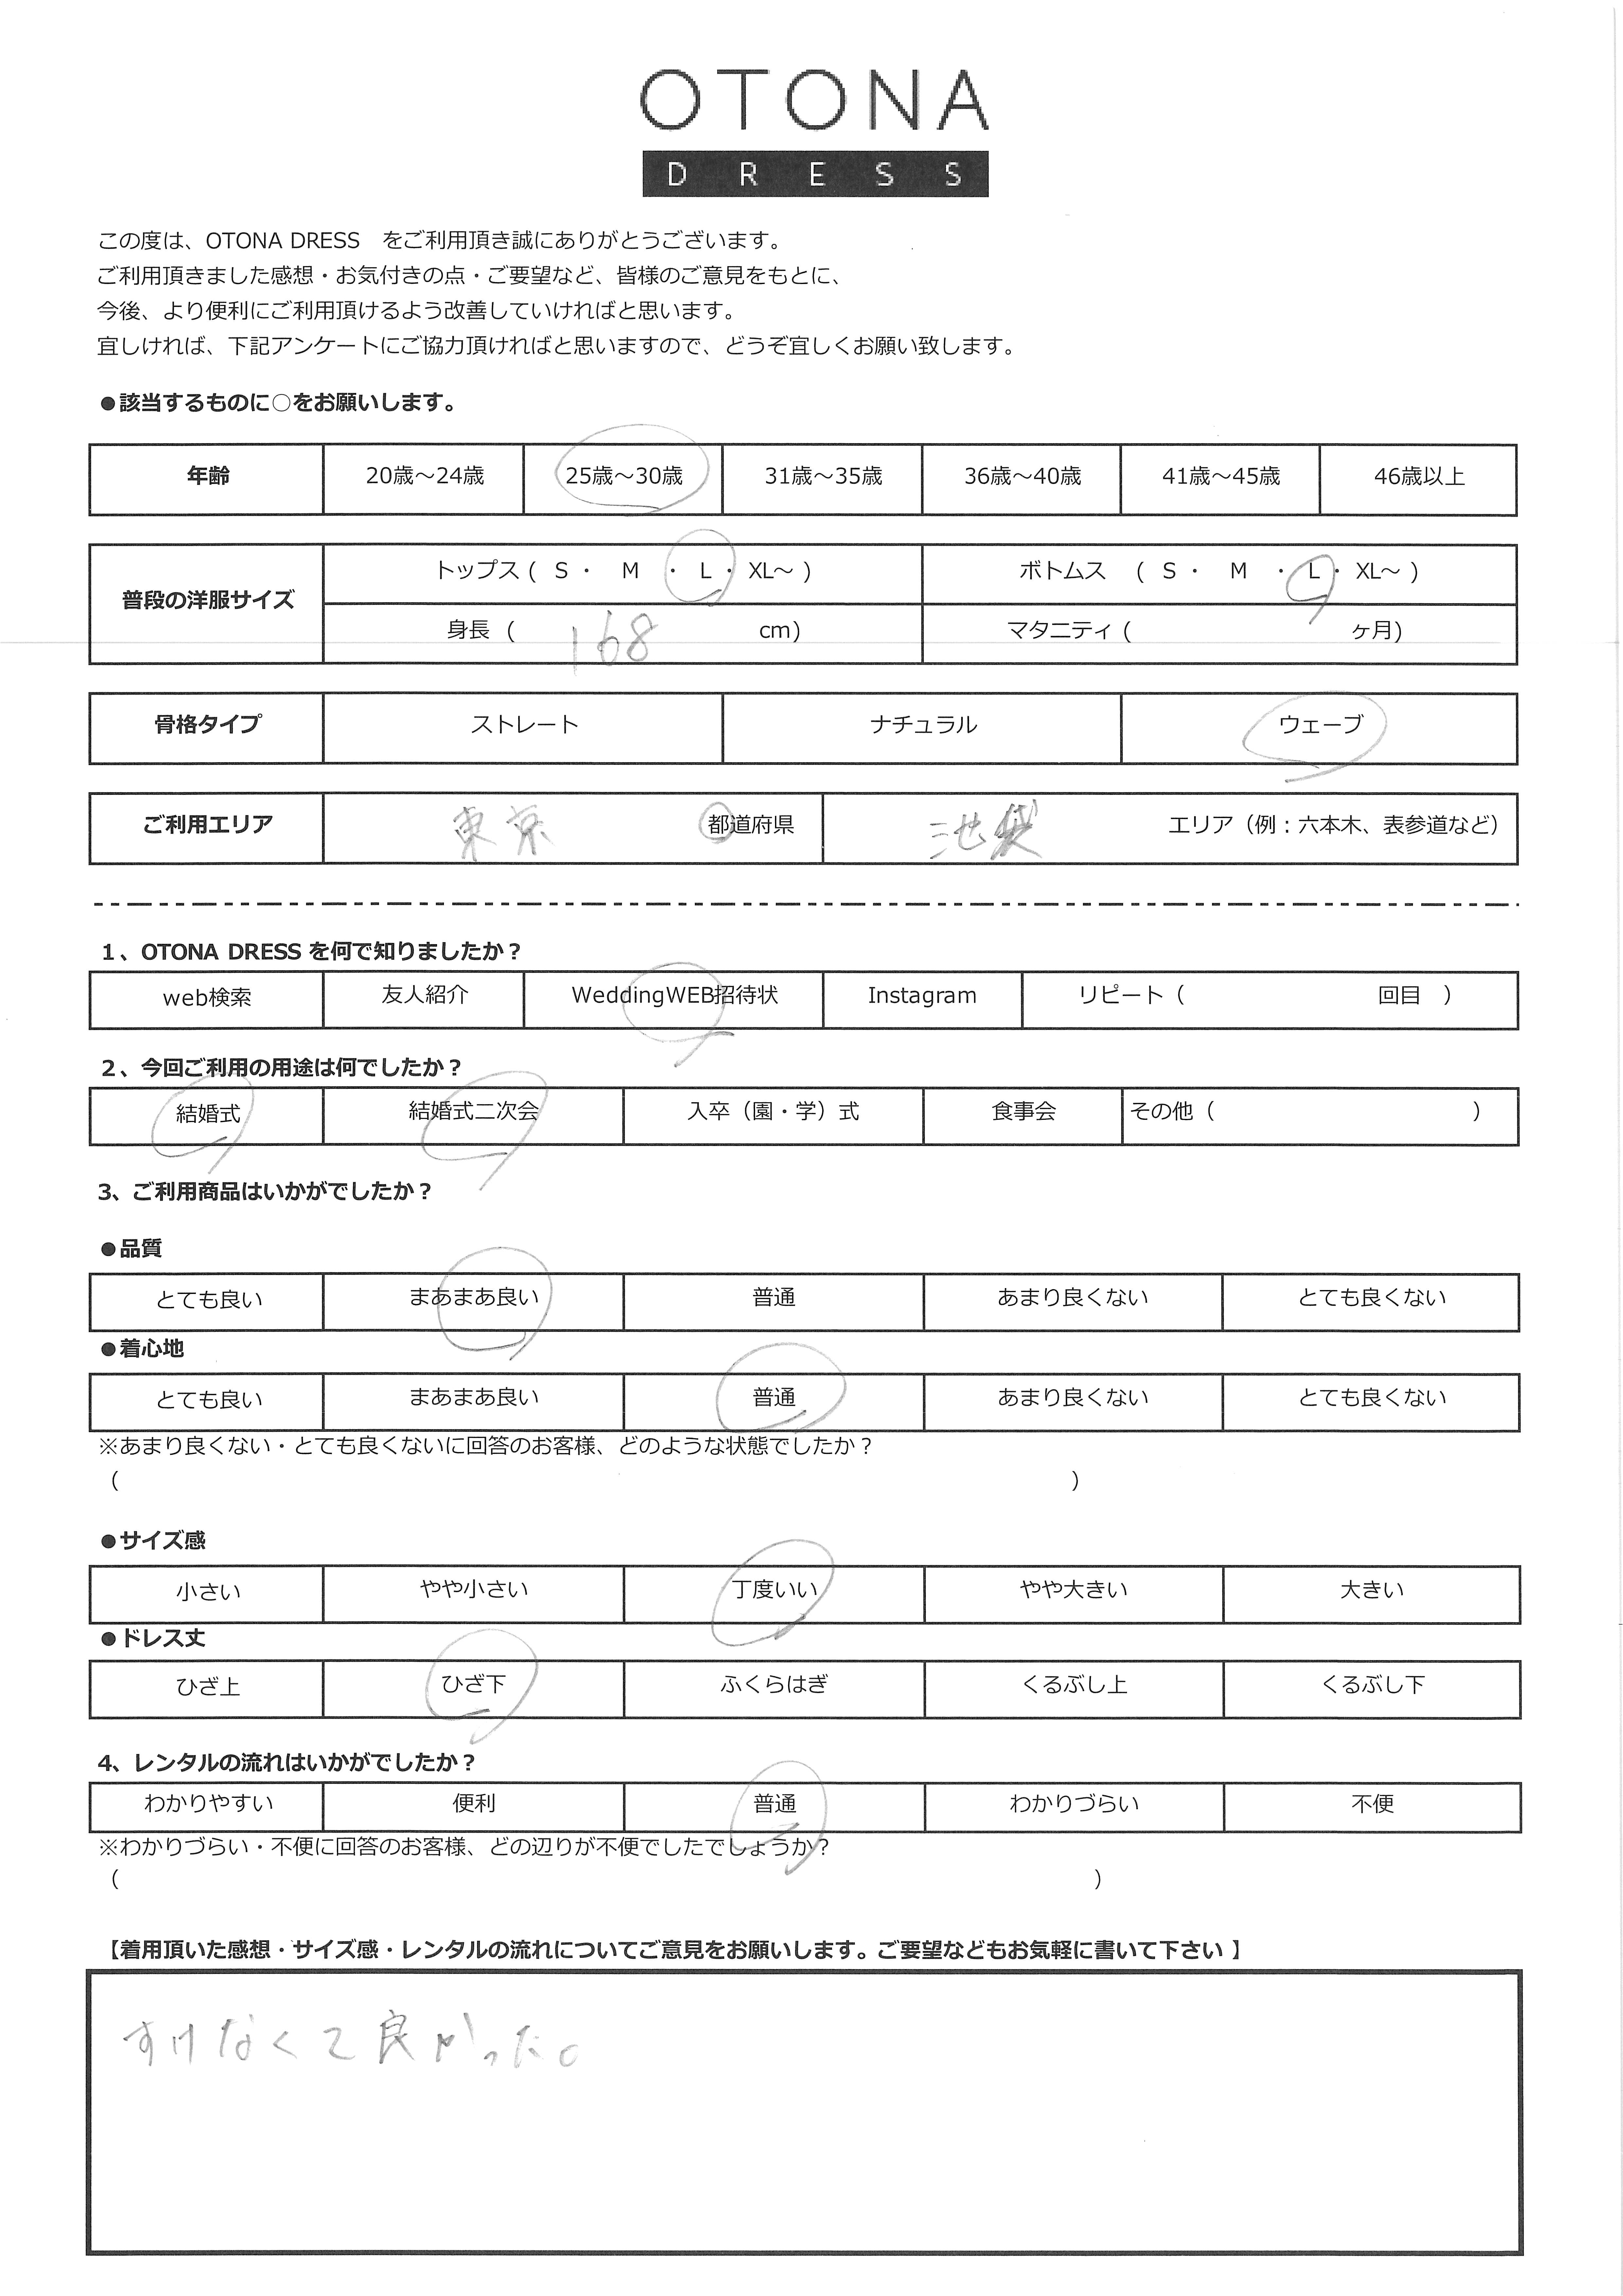 OTONA
DRESS
この度は、OTONA DRESS　をご利用頂き誠にありがとうございます。
ご利用頂きました感想・お気付きの点・ご要望など、皆様のご意見をもとに、
今後、より便利にご利用頂けるよう改善していければと思います。
宜しければ、下記アンケートにご協力頂ければと思いますので、どうぞ宜しくお願い致します。
●該当するものに○をお願いします。
年齢 20歳～24歳 25歳～30歳 31歳～35歳 36歳～40歳 41歳～45歳 46歳以上
普段の洋服サイズ トップス ( S ・ M ・ L ・ XL～ ) ボトムス ( S ・ M ・ L ・ XL～ )
身長 ( 168 cm) マタニティ ( ヶ月)
骨格タイプ ストレート ナチュラル ウェーブ
ご利用エリア 東京 都道府県 池袋 エリア（例：六本木、表参道など）
1、OTONA DRESS を何で知りましたか？
web検索 友人紹介 WeddingWEB招待状 Instagram リピート（ 回目 ）
2、今回ご利用の用途は何でしたか？
結婚式 結婚式二次会 入卒（園・学）式 食事会 その他（ ）
3、ご利用商品はいかがでしたか？
●品質
とても良い まあまあ良い 普通 あまり良くない とても良くない
●着心地
とても良い まあまあ良い 普通 あまり良くない とても良くない
※あまり良くない・とても良くないに回答のお客様、どのような状態でしたか？
（ ）
●サイズ感
小さい やや小さい 丁度いい やや大きい 大きい
●ドレス丈
ひざ上 ひざ下 ふくらはぎ くるぶし上 くるぶし下
4、レンタルの流れはいかがでしたか？
わかりやすい 便利 普通 わかりづらい 不便
※わかりづらい・不便に回答のお客様、どの辺りが不便でしたでしょうか？
（ ）
【着用頂いた感想・サイズ感・レンタルの流れについてご意見をお願いします。ご要望などもお気軽に書いて下さい 】
すけなくて良かった。